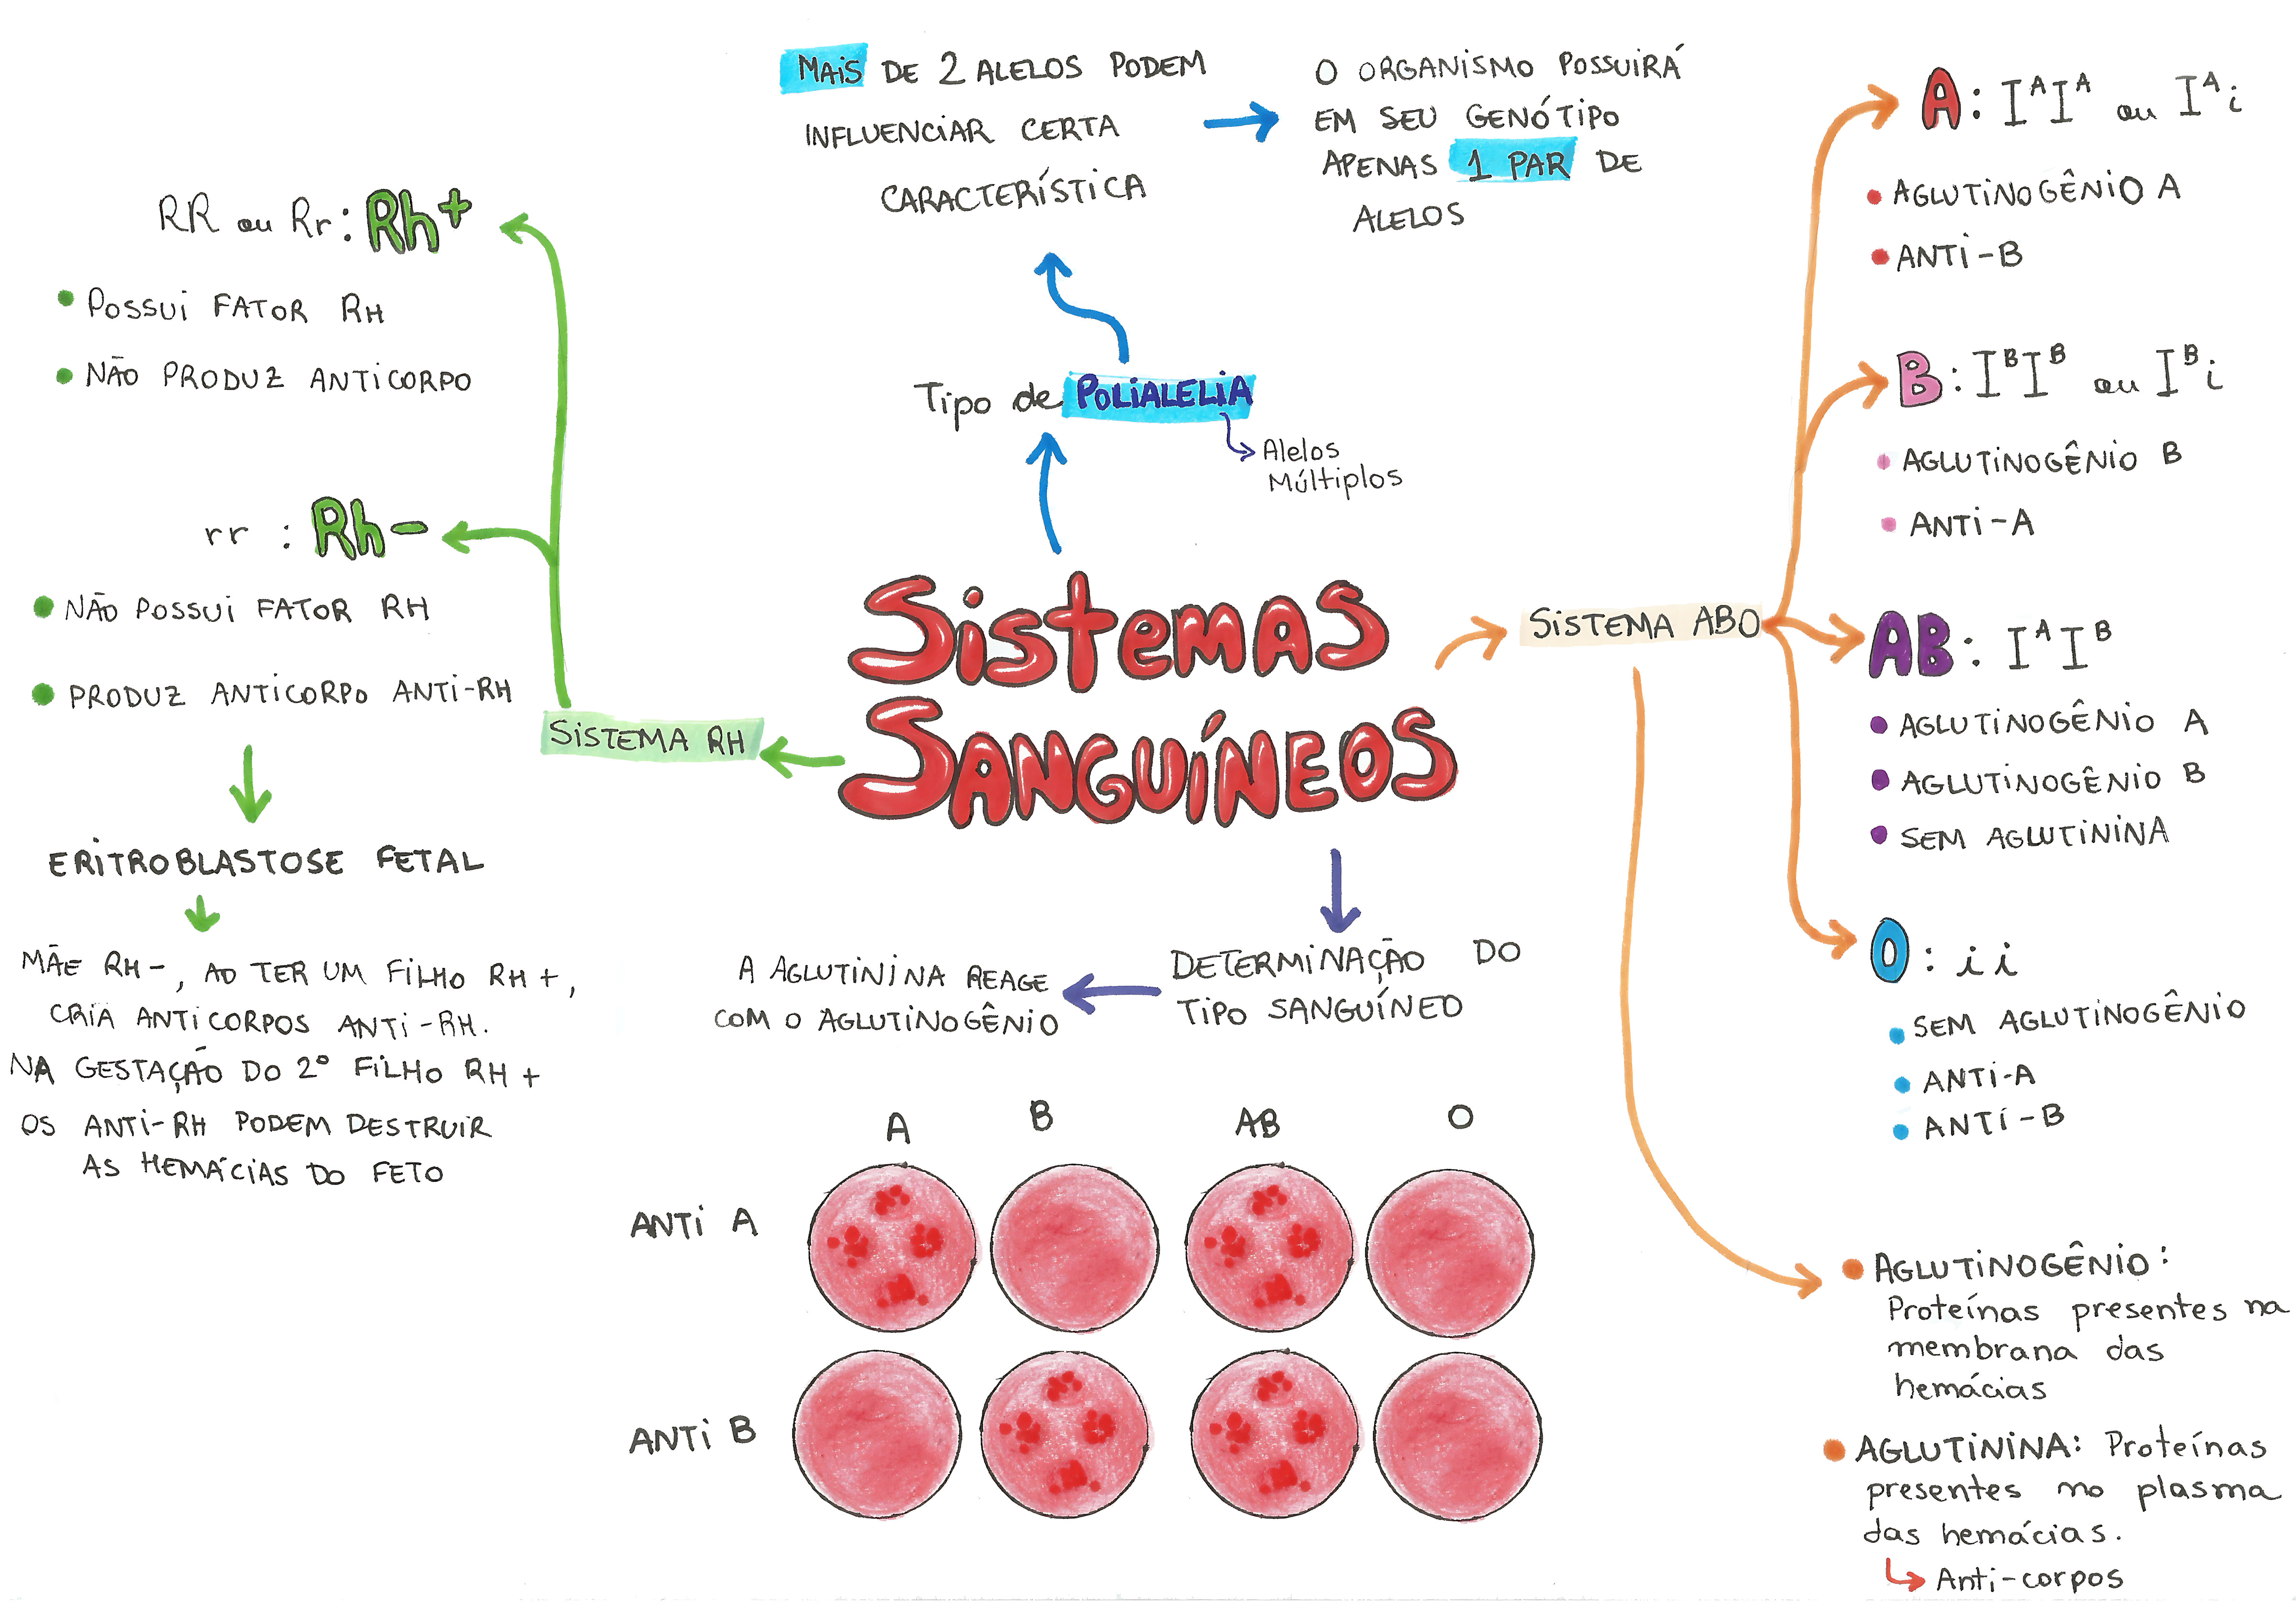 Sistemas
Sanguíneos
Tipo de POLIALELIA
Alelos
Múltiplos
MAIS DE 2 ALELOS PODEM
INFLUENCIAR CERTA
CARACTERÍSTICA
O ORGANISMO POSSUIRÁ
EM SEU GENÓTIPO
APENAS 1 PAR DE
ALELOS
SISTEMA ABO
A: IᴬIᴬ ou Iᴬi
• AGLUTINOGÊNIO A
• ANTI-B
B: IᴮIᴮ ou Iᴮi
• AGLUTINOGÊNIO B
• ANTI-A
AB: IᴬIᴮ
• AGLUTINOGÊNIO A
• AGLUTINOGÊNIO B
• SEM AGLUTININA
O: ii
• SEM AGLUTINOGÊNIO
• ANTI-A
• ANTI-B
• AGLUTINOGÊNIO:
Proteínas presentes na
membrana das
hemácias
• AGLUTININA: Proteínas
presentes no plasma
das hemácias.
Anti-corpos
DETERMINAÇÃO DO
TIPO SANGUÍNEO
A AGLUTININA REAGE
COM O AGLUTINOGÊNIO
A B AB O
ANTI A
ANTI B
SISTEMA RH
RR ou Rr: Rh+
• POSSUI FATOR RH
• NÃO PRODUZ ANTICORPO
rr : Rh-
• NÃO POSSUI FATOR RH
• PRODUZ ANTICORPO ANTI-RH
ERITROBLASTOSE FETAL
MÃE RH-, AO TER UM FILHO RH+,
CRIA ANTICORPOS ANTI-RH.
NA GESTAÇÃO DO 2º FILHO RH+
OS ANTI-RH PODEM DESTRUIR
AS HEMÁCIAS DO FETO